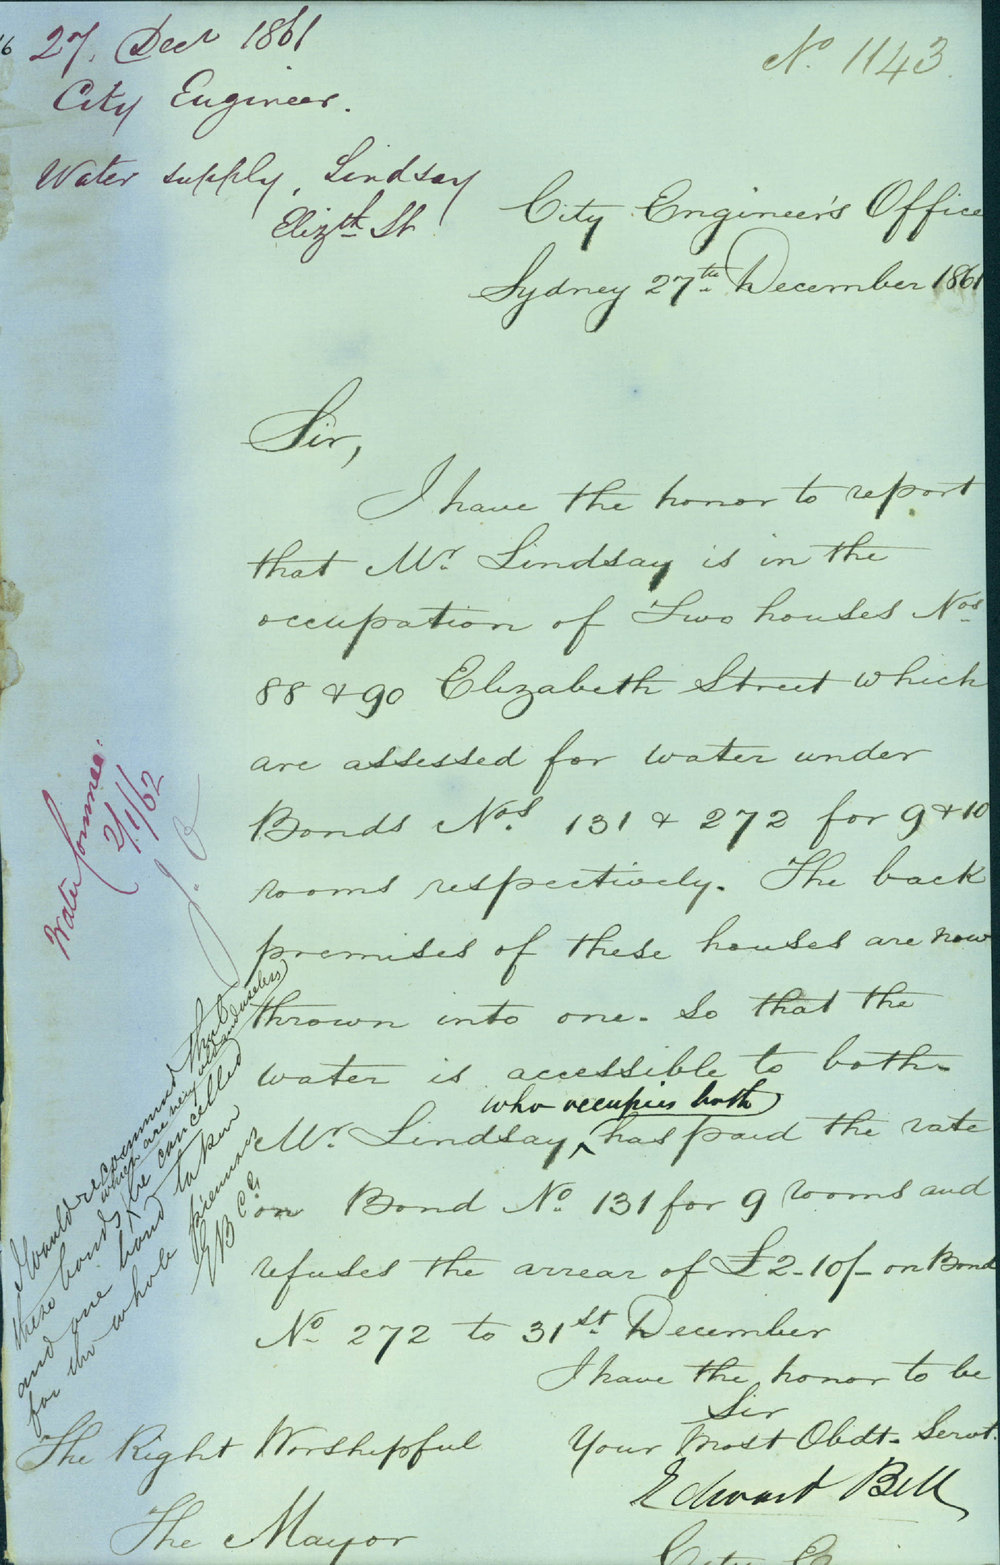 27, Decr 1861
City Engineer.
Water supply, Lindsay
Elizth. St
No. 1143.
City Engineer's Office
Sydney 27th. December 1861
Sir,
I have the honor to report
that Mr. Lindsay is in the
occupation of Two houses Nos.
88 & 90 Elizabeth Street which
are assessed for water under
Bonds Nos. 131 & 272 for 9 & 10
rooms respectively. The back
premises of these houses are now
thrown into one. so that the
water is accessible to both.
who occupies both
Mr. Lindsay, ^ has paid the rate
on Bond No. 131 for 9 rooms and
refuses the arrear of £2-10/- on Bond
No. 272 to 31st. December
I have the honor to be
Sir
Your Most Obdt. Servt.
Edward Bell
City
The Right Worshipful
The Mayor
Water Commee:
2/1/62
I would recommend that
which are very old and useless
these bonds ^ be cancelled
and one bond taken
for the whole premises
EB C.E.